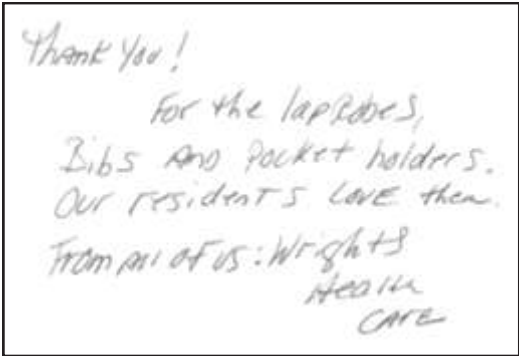 Thank You!
For the lap Robes,
Bibs AND Pocket holders.
Our residents LOVE them.
From All of us: Wrights
Health
CARE